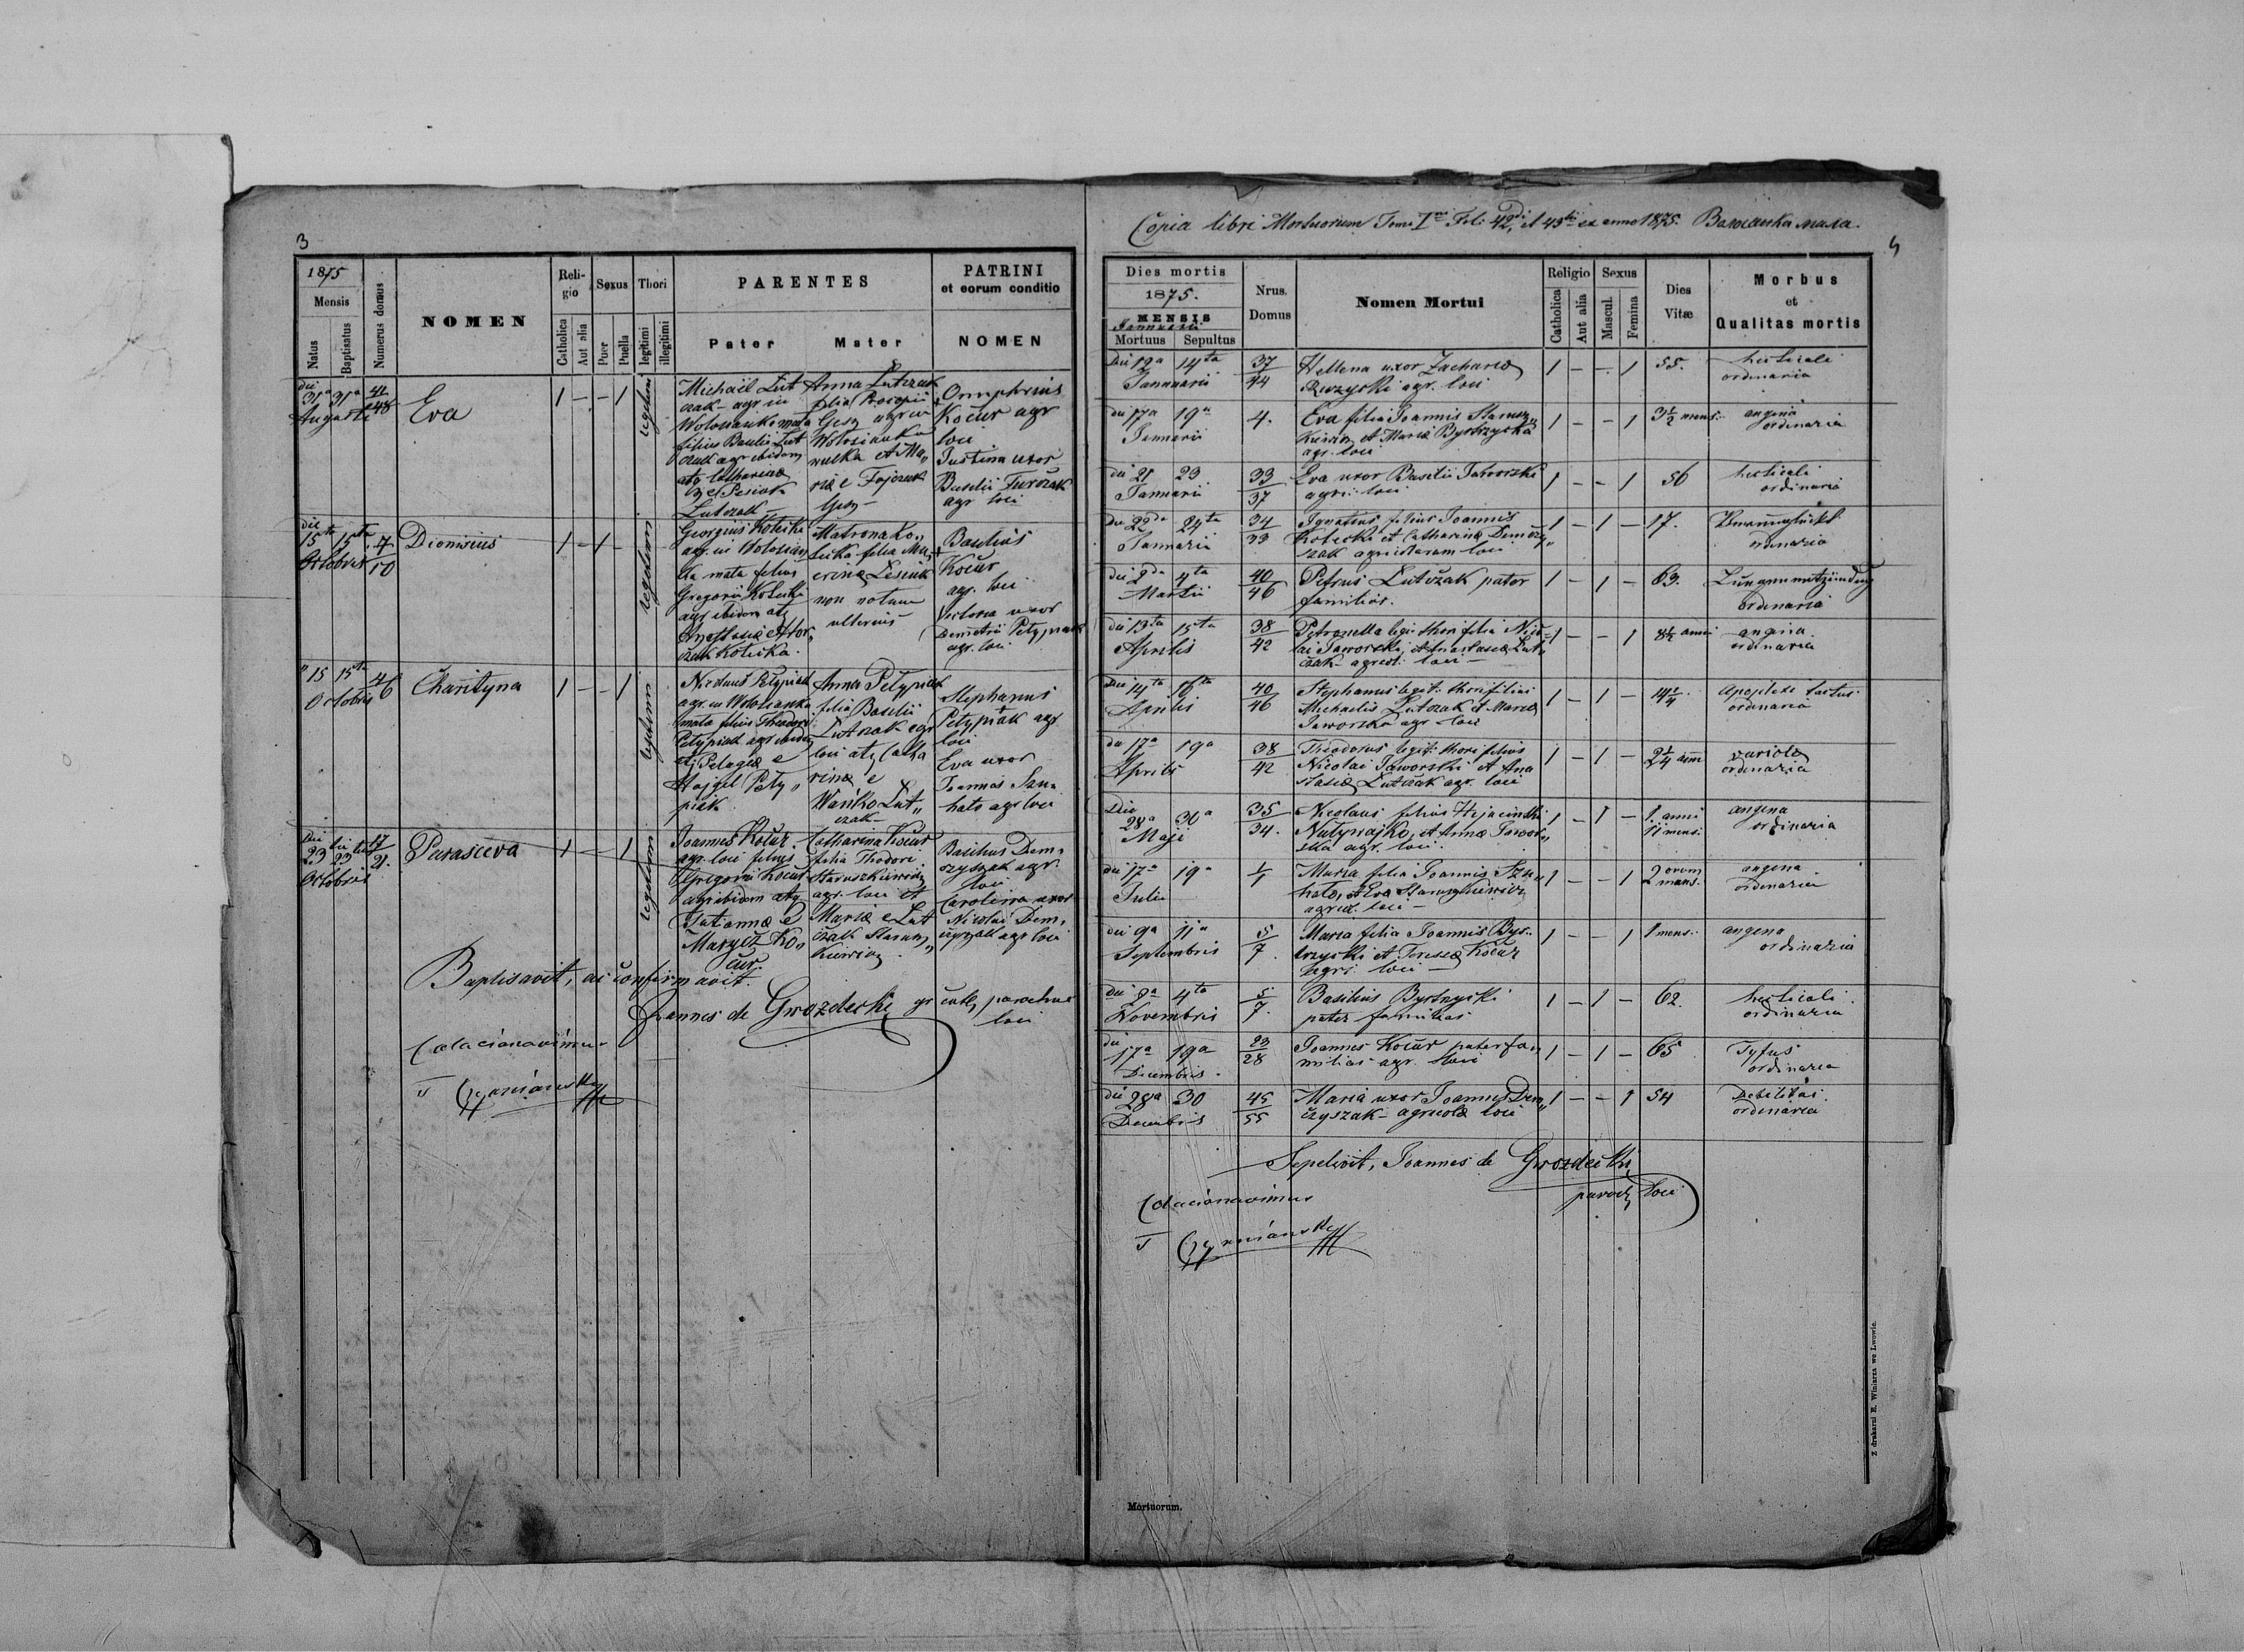 3
1875
Mensis
Natus
Baptisatus
Numerus domus
NOMEN
Reli-
gio
Catholica
Aut alia
Sexus
Puer
Puella
Thori
legitimi
illegitimi
PARENTES
Pater
Mater
PATRINI
et eorum conditio
NOMEN
die
31a 31a
Augusti
41
48
Eva
1 – – 1
legitimi
Michaël Lut
czak – agr in
Wołosianka mała
filius Basilii Lut
czak agr ibidem
atq Catharinæ
Lutczak –
Anna Lutczak
filia Procopii
Wołosianka
wielka et Ma„
riæ e Fajczak
Onuphrius
Kočur agr
loci
Justina uxor
Basilii
agr loci
die
15ta 15ta
Octobris
7
10
Dionisius
1 – 1 –
legitimi
Georgius Kotecki
agr. in Wołosian
ka mała filius
Gregorii Kotecki
agr ibidem atq
Kotecka.
Matrona Ko„
tecka filia
non notum
ulterius
Basilius
Kočur
agr. loci
Victoria uxor
Demetrii Petypiak
agr. loci
" 15 15ta
Octobris
4
6
Charityna
1 – – 1
legitimi
Nicolaus Petypiak
agr. in Wołosianka
mała filius Theodori
Petypiak agr ibidem
et Pelagiæ e
Hojgel Pety„
piak
Anna Petypiak
filia Basilii
Lutczak agr
loci atq Catha
rinæ e
Wańko Lut„
czak –
Stephanus
Petypiak agr
loci
Eva uxor
Joannis Szu„
hato agr loci
Die
23 23
Octobris
17
21.
Parasceva
1 – – 1
legitimi
Joannes Kočur
agr. loci filius
Gregorii Kočur
agr ibidem atq
Tatianna e
Ko„
čur.
Catharina Kočur
filia Thodori
Staruszkiewicz
agr. loci et
Mariæ e Lut
čzak Starusz„
kiewicz.
Basilius Dem„
czyszak agr.
loci
Carolina uxor
Nicolai Dem„
czyszak agr loci
Baptisavit, ac confirmavit.
Joannes de Grozdecki gr cath parochus
loci
Colacionavimus
Copia libri Mortuorum Tomi Imi Foli 42di et 43tii ex anno 1875. Волосянка мала.
4
Dies mortis
1875.
MENSIS
Januarii
Mortuus
Sepultus
Nrus.
Domus
Nomen Mortui
Religio
Catholica
Aut alia
Sexus
Mascul.
Femina
Dies
Vitæ
Morbus
et
Qualitas mortis
Die 12a 14ta
Januarii
37
44
Hellena uxor Zachariæ
agr. loci
1 – – 1
55.
hecticali
ordinaria
die 17a 19a
Januarii
4.
Eva filia Joannis Starusz„
kiewicz et Mariæ Bystrzycka
agr. loci
1 – – 1
3 1/2 mens.
angina
ordinaria
die 21 23
Januarii
33
37
Eva uxor Basilii Jaworski
agri. loci
1 – – 1
56
hecticali
ordinaria
die 22da 24ta
Januarii
34
33
Ignatius filius Joannis
Kotecki et Catharina Demczy„
szak agricolarum loci
1 – 1 –
17.
ordinaria
die 2da 4ta
Martii
40
46
Petrus Lutczak pater
familias.
1 – 1 –
63.
Lungenentzündung
ordinaria
die 13ta 15ta
Aprilis
38
42
Petronella legi. thori filia Nico
lai Jaworski, et Anastasiæ Lut„
čzak – agricol. loci –
1 – – 1
anni
angina
ordinaria
Die 14ta 16ta
Aprilis
40
46
Stephanus legit. thori filius
Michaelis Lutczak et Mariæ
Jaworska agr loci
1 – 1 –
apoplexi tactus
ordinaria
die 17a 19a
Aprilis
38
42
Theodorus legit. thori filius
Nicolai Jaworski et Ana
stasiæ Lutczak agr. loci
1 – 1 –
2 1/4 anni
variola
ordinaria
Die
28a 30a
Maji
35
34.
Nicolaus filius Hyacinthi
Natywajko, et Anna Jawor„
ska agr. loci.
1 – 1 –
1. anni
11 mens.
angina
ordinaria
die 17a 19a
Julii
1
Maria filia Joannis Szu
hato, et Eva Staruszkiewicz
agricol. loci –
1 – – 1
2 mens.
angina
ordinaria
die 9a 11a
Septembris
5
7.
Maria filia Joannis Bys„
trzycki et Teresiæ Kočur
agri loci –
1 – – 1
1 mens.
angina
ordinaria
die 2a 4ta
Novembris
5
7.
Basilius Bystrzycki
pater familias
1 – 1 –
62.
hecticali
ordinaria
die
17a 19a
Decembris.
23
28
Joannes Kočur pater fa„
milias agr. loci
1 – 1 –
65
Tyfus
ordinaria
die 28a 30
Decembris
45
55
Maria uxor Joannis Dem„
czyszak – agricolæ loci
1 – – 1
54
Debilitas
ordinaria
Sepelivit, Joannes de Grozdecki
paroch loci
Colacionavimus
Mortuorum.
Z drukarni E. Winiarza we Lwowie.